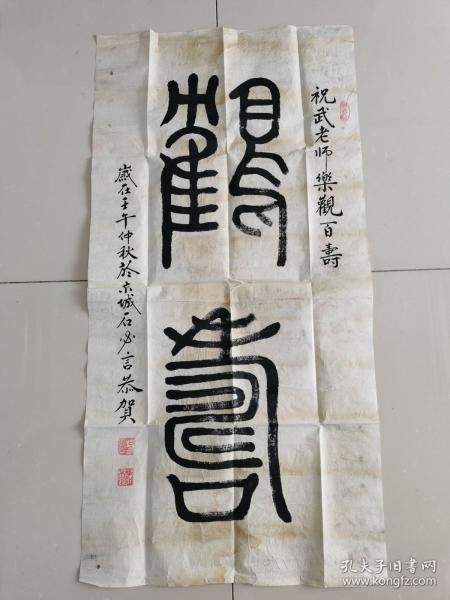 祝武老师樂觀百壽
鶴壽
歲在壬午仲秋於京城石必言恭贺
孔夫子旧书网
www.kongfz.com